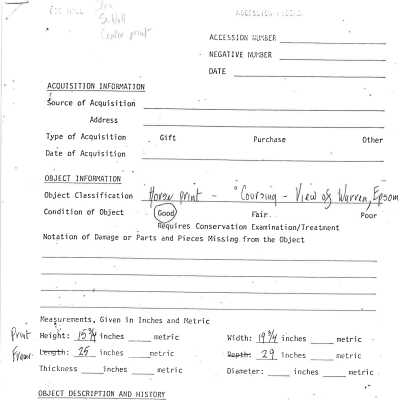 Center print
ACCESSION NUMBER
NEGATIVE NUMBER
DATE
ACQUISITION INFORMATION
Source of Acquisition
Address
Type of Acquisition Gift Purchase Other
Date of Acquisition
OBJECT INFORMATION
Object Classification Horse print - "Coursing - View of Warren, Epsom
Condition of Object Good Fair Poor
Requires Conservation Examination/Treatment
Notation of Damage or Parts and Pieces Missing from the Object
Measurements, Given in Inches and Metric
Print Height: 15 3/4 inches metric Width: 19 3/4 inches metric
Frame Length: 25 inches metric Depth: 29 inches metric
Thickness inches metric Diameter: inches metric
OBJECT DESCRIPTION AND HISTORY